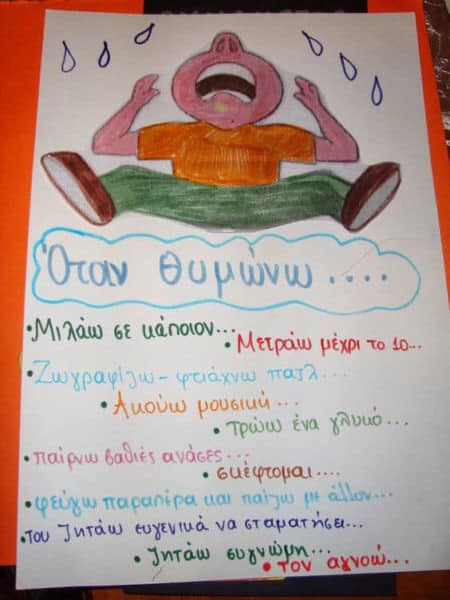 Όταν θυμώνω ....
•Μιλάω σε κάποιον...
•Μετράω μέχρι το 10...
•Ζωγραφίζω - φτιάχνω παζλ...
•Ακούω μουσική...
•τρώω ένα γλυκό...
•παίρνω βαθιές ανάσες...
•σκέφτομαι....
•φεύγω παραπέρα και παίζω με άλλον...
•του ζητάω ευγενικά να σταματήσει...
•ζητάω συγνώμη...
•τον αγνοώ...